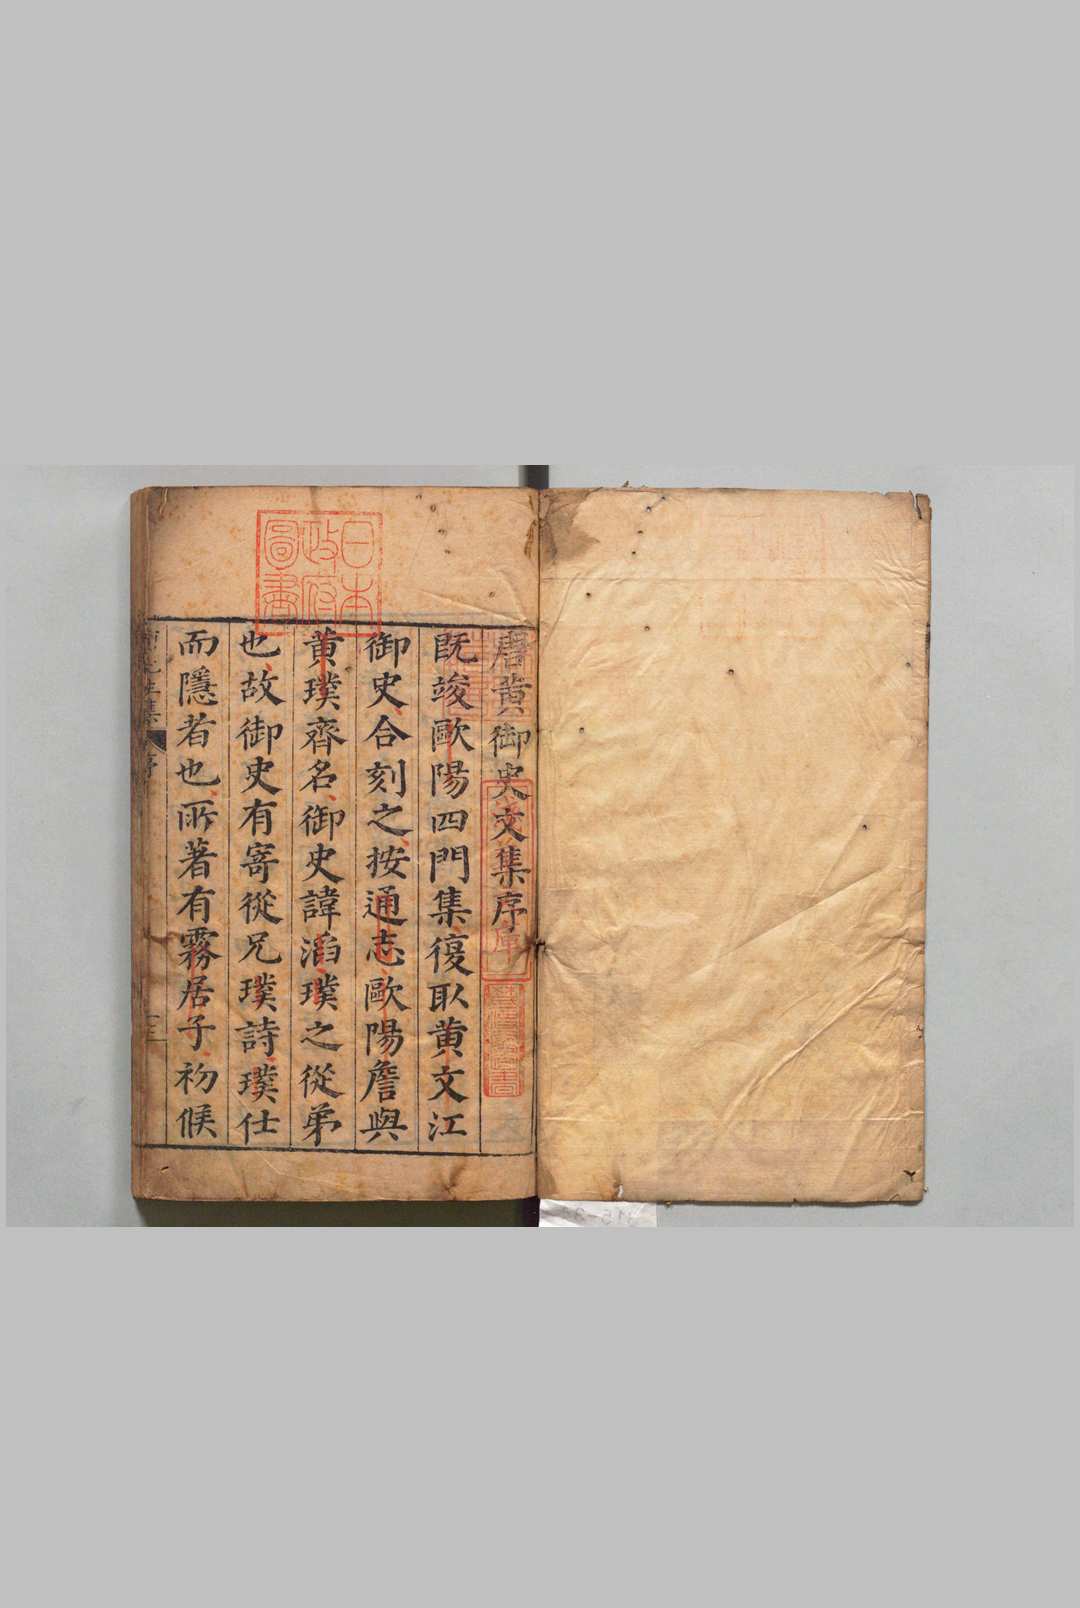 唐黄御史文集序
既竣歐陽四門集復取黄文江
御史合刻之按通志歐陽詹與
黄璞齊名御史諱滔璞之從弟
也故御史有寄從兄璞詩璞仕
而隱者也所著有霧居子初候
日本
政府
圖書